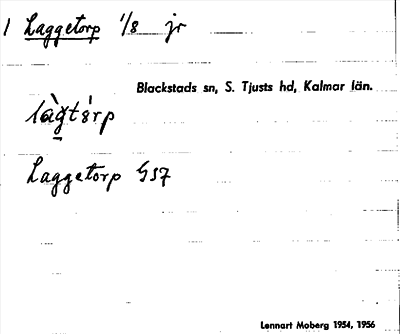 1 Laggetorp 1/8 jr
Blackstads sn, S. Tjusts hd, Kalmar län.
Laggetorp G37
Lennart Moberg 1954, 1956